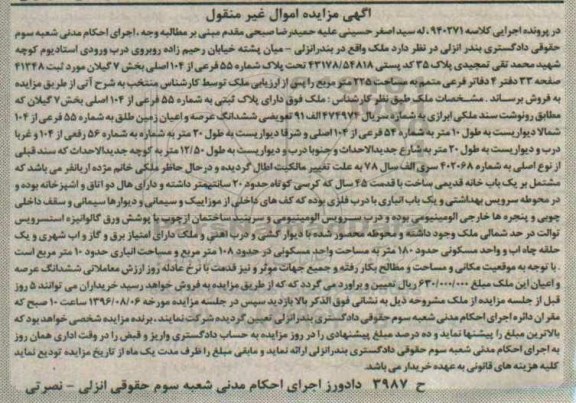 آگهی مزایده اموال غیر منقول
در پرونده اجرایی کلاسه ۹۴۰۲۷۱، له سید اصغر حسینی علیه حمیدرضا صبحی مقدم مبنی بر مطالبه وجه، اجرای احکام مدنی شعبه سوم
حقوقی دادگستری بندر انزلی در نظر دارد ملک واقع در بندرانزلی - میان پشته خیابان رحیم زاده روبروی درب ورودی استادیوم کوچه
شهید محمد تقی تمجیدی پلاک ۳۵ کد پستی ۴۳۱۷۸/۵۴۸۱۸ تحت پلاک شماره ۵۵ فرعی از ۱۰۴ اصلی بخش ۷ گیلان مورد ثبت ۴۱۳۴۸
صفحه ۳۳ دفتر ۴ دفاتر فرعی منضم به مساحت ۲۲۵ متر مربع را پس از ارزیابی ملک توسط کارشناس منتخب به شرح آتی از طریق مزایده
به فروش برساند. مشخصات ملک طبق نظر کارشناس: ملک فوق دارای پلاک ثبتی به شماره ۵۵ فرعی از ۱۰۴ اصلی بخش ۷ گیلان که
مطابق رونوشت سند ملکی ابرازی به شماره سریال ۴۷۴۹۷۴ الف ۹۱ تعویضی ششدانگ عرصه و اعیان زمین طلق به شماره ۵۵ فرعی از ۱۰۴
شمالا دیواریست به طول ۱۰ متر به شماره ۵۴ فرعی از ۱۰۴ اصلی و شرقا دیواریست به طول ۳۰ متر به شماره به شماره ۵۶ فرعی از ۱۰۴ و غربا
درب و دیواریست به طول ۲۰ متر به شارع جدیدالاحداث و جنوبا درب و دیواریست به طول ۱۲/۵۰ متر به کوچه جدیدالاحداث که سند قبلی
از نوع اصلی به شماره ۴۰۲۰۶۸ سری الف سال ۷۸ به علت تغییر مالکیت ابطال گردیده و در حال حاضر ملکی خانم مژده آریانفر می باشد که
مشتمل بر یک باب خانه قدیمی ساخت با قدمت ۴۵ سال که کرسی کوتاه حدود ۲۰ سانتیمتر داشته و دارای هال دو اتاق و آشپزخانه بوده و
در محوطه سرویس بهداشتی و یک باب انباری با درب فلزی بوده که کف های داخلی از موزاییک و سیمانی و دیوارها سیمانی و سقف داخلی
چوبی و پنجره ها خارجی آلومینیومی بوده و درب سرویس آلومینیومی و سربندی ساختمان از چوب با پوشش ورق گالوانیزه
توالت در حد شمالی ملک وجود داشته و محوطه محصور شده با دیوار گلی و درب آهنی و ملک دارای امتیاز برق و گاز و آب شهری و یک
حلقه چاه آب و واحد مسکونی حدود ۱۸۰ متر به مساحت واحد مسکونی در حدود ۱۰۸ متر مربع و مساحت انباری حدود ۱۰ متر مربع است
. با توجه به موقعیت مکانی و مساحت و مصالح بکار رفته و جمیع جهات موثر و نیز قدمت با نرخ عادله روز ارزش معاملاتی ششدانگ عرصه
و اعیان این ملک مبلغ ۶۳۰/۰۰۰/۰۰۰ ریال تعیین و برآورد می گردد که از طریق مزایده به فروش خواهد رسید خریداران می توانند ۵ روز
قبل از جلسه مزایده از ملک مشروحه ذیل به نشانی فوق الذکر بالا بازدید سپس در جلسه مزایده مورخه ۱۳۹۶/۰۸/۰۶ ساعت ۱۰ صبح که
مقر آن دائره اجرای احکام مدنی شعبه سوم حقوقی دادگستری بندرانزلی تعیین گردیده شرکت نمایند. برنده مزایده شخصی خواهد بود که
بالاترین مبلغ را پیشنهاد نماید و ده درصد مبلغ پیشنهادی را در روز مزایده به حساب دادگستری واریز و قبض را در وقت اداری همان روز
به اجرای احکام مدنی شعبه سوم حقوقی دادگستری بندرانزلی ارائه نماید و مابقی مبلغ را ظرف مدت یک ماه از تاریخ مزایده تودیع نماید
کلیه هزینه های قانونی به عهده خریدار می باشد.
ح ۳۹۸۷ دادورز اجرای احکام مدنی شعبه سوم حقوقی انزلی - نصرتی